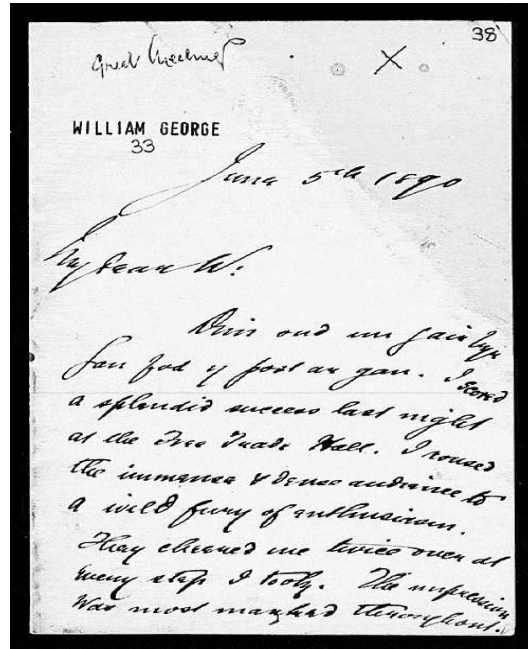 38
Great Meeting
X
WILLIAM GEORGE
33
June 5th 1890
My dear W:
Dim ond un gair byr
fan fod y post ar gau. I scored
a splendid success last night
at the Free Trade Hall. I roused
the immense & dense audience to
a wild fury of enthusiasm.
They cheered me twice over at
every step I took. The impression
was most marked throughout.